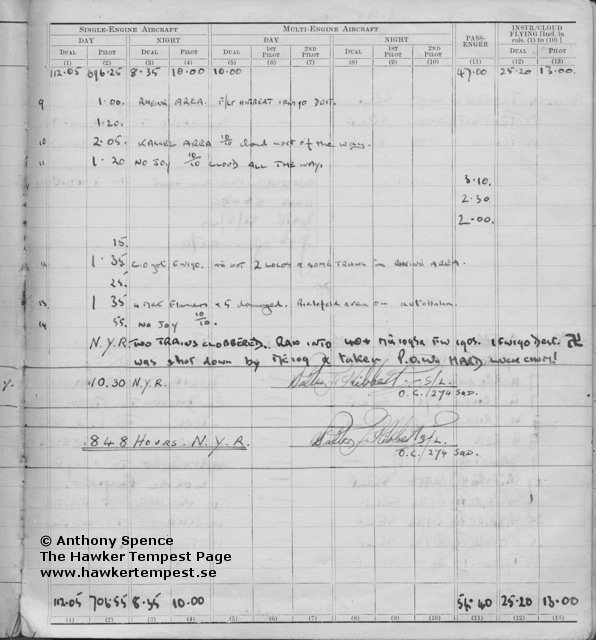 SINGLE-ENGINE AIRCRAFT MULTI-ENGINE AIRCRAFT PASS-ENGER INSTR/CLOUD FLYING [Incl. in cols. (1) to (10)]
DAY NIGHT DAY NIGHT
DUAL PILOT DUAL PILOT DUAL 1ST PILOT 2ND PILOT DUAL 1ST PILOT 2ND PILOT DUAL PILOT
(1) (2) (3) (4) (5) (6) (7) (8) (9) (10) (11) (12) (13)
112.05 696.25 8.35 10.00 10.00 47.00 25.20 13.00
9 1.00. RHEINE AREA. F/LT HIBBERT 1 FW190 DEST.
1.20.
10 2.05. KASSEL AREA 10/10 cloud most of the way.
11 1.20 NO JOY 10/10 CLOUD ALL THE WAY.
3.10.
2.30
2.00.
15.
1.35 C.O. got FW190. WE GOT 2 LOCOS & SOME TRUCKS IN RHEINE AREA.
25.
13 1.35 4 MET Flamers & 5 damaged. Bielefeld area on autobahn.
14 55. NO JOY 10/10.
N.Y.R. TWO TRAINS CLOBBERED. RAN INTO 40+ ME109s & FW190s. 1 FW190 Dest. 卍
was shot down by ME109 & taken P.O.W. HARD LUCK CHUM!
10.30 N.Y.R. Walter J. Hibbert S/L.
O.C. / 274 SQD.
848 HOURS. N.Y.R. Walter J. Hibbert S/L.
O.C. / 274 SQD.
© Anthony Spence
The Hawker Tempest Page
www.hawkertempest.se
112.05 706.55 8.35 10.00 54.40 25.20 13.00
(1) (2) (3) (4) (5) (6) (7) (8) (9) (10) (11) (12) (13)